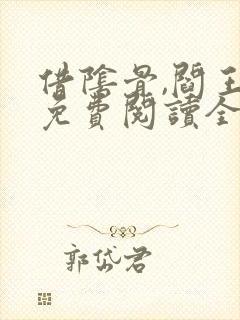 借陰骨,閻王
免費閱讀全
郭岱君